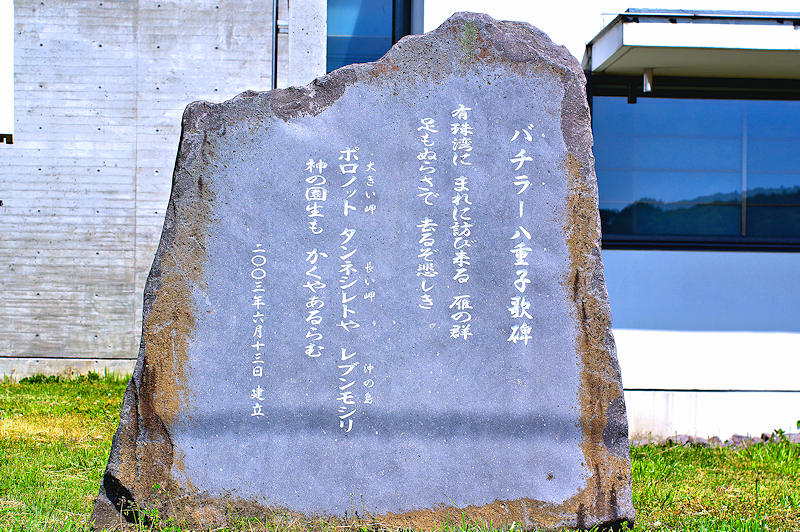 バチラー八重子歌碑
有珠湾に まれに訪び来る 雁の群
足もぬらさで 去るぞ悲しき
大きい岬 長い岬 沖の島
ポロノット タンネシレトや レブンモシリ
神の園生も かくやあるらむ
二〇〇三年六月十三日 建立